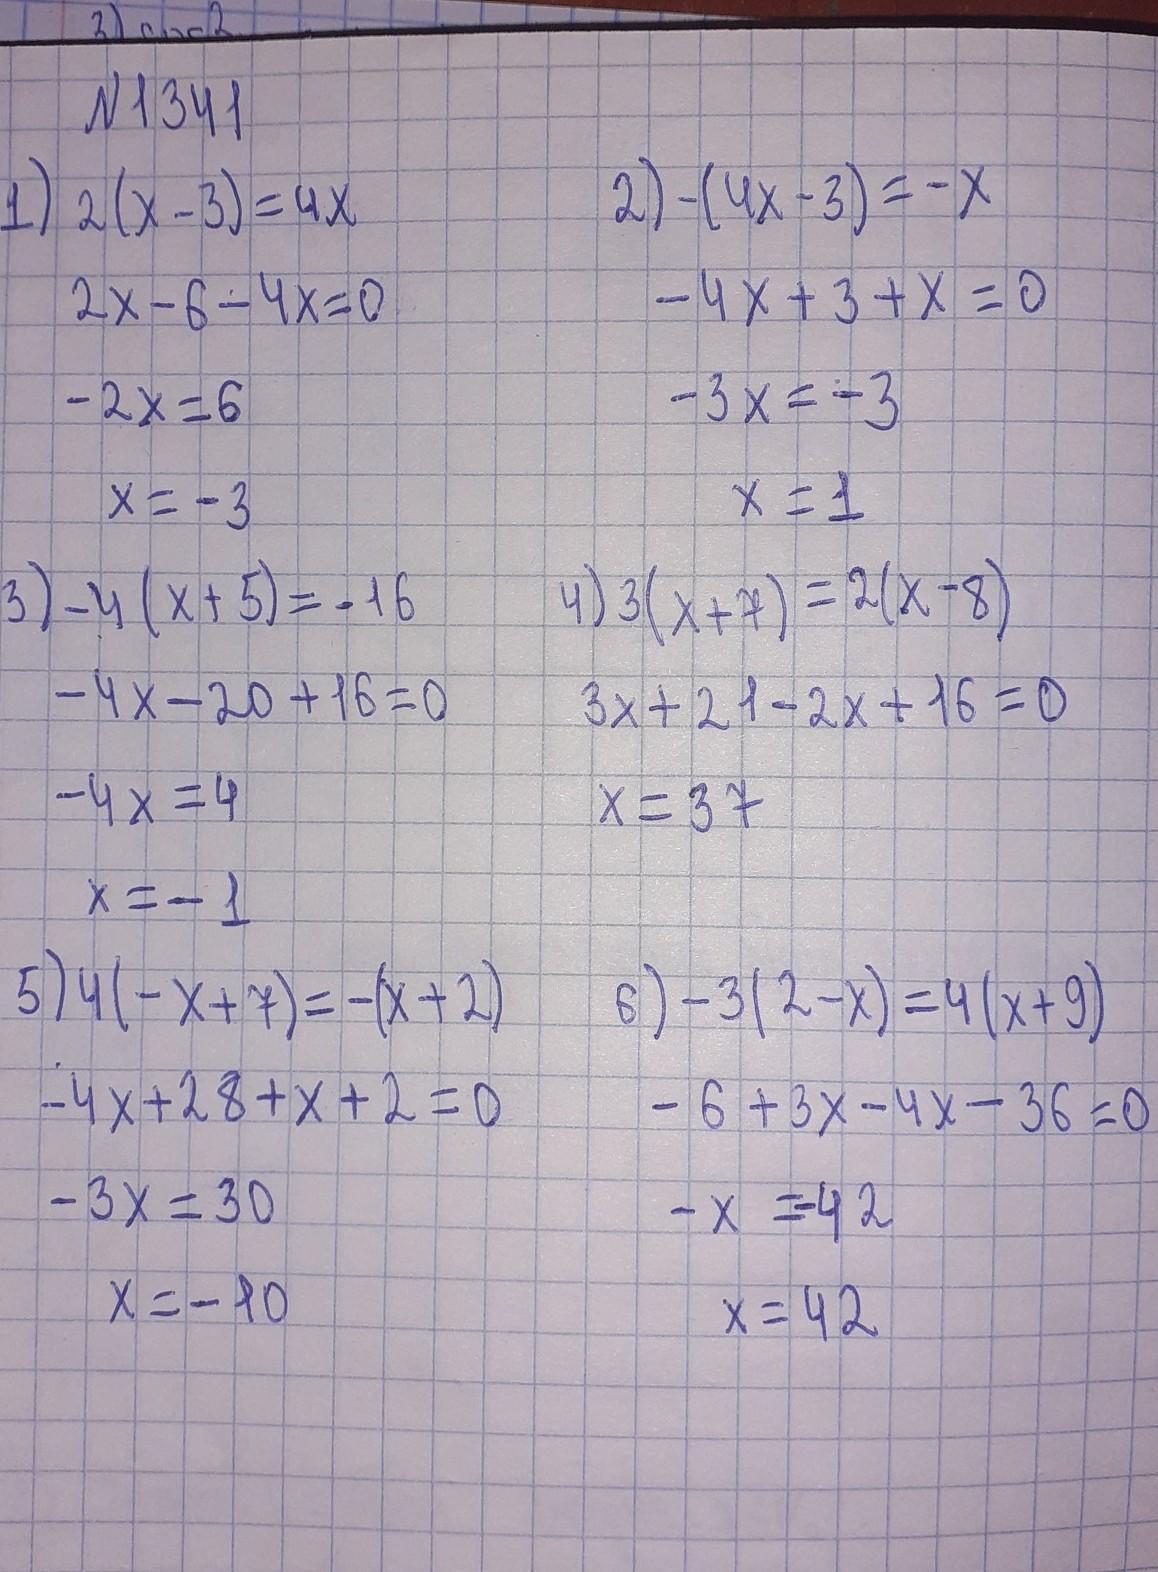 N1341
1) 2(x-3)=4x
2x-6-4x=0
-2x=6
x=-3
2) -(4x-3)=-x
-4x+3+x=0
-3x=-3
x=1
3) -4(x+5)=-16
-4x-20+16=0
-4x=4
x=-1
4) 3(x+7)=2(x-8)
3x+21-2x+16=0
x=37
5) 4(-x+7)=-(x+2)
-4x+28+x+2=0
-3x=30
x=-10
6) -3(2-x)=4(x+9)
-6+3x-4x-36=0
-x=-42
x=42